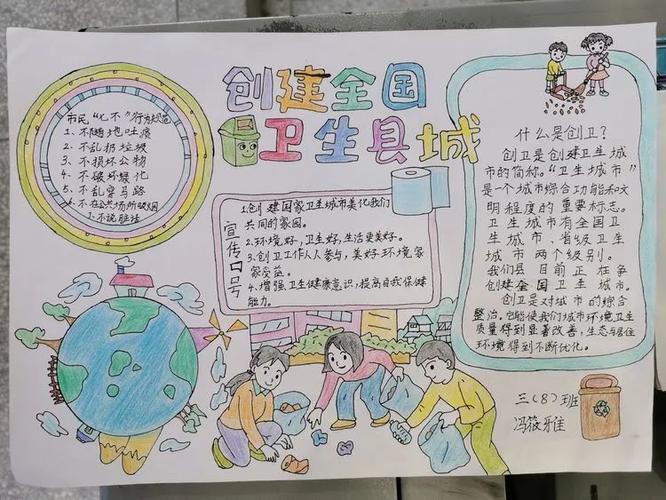 创建全国
卫生县城
市民“七不”行为规范
1、不随地吐痰
2、不乱扔垃圾
3、不损坏公物
4、不破坏绿化
5、不乱穿马路
6、不在公共场所吸烟
7、不说脏话
宣传口号
1.创建国家卫生城市美化我们
共同的家园。
2.环境好,卫生好,生活更美好。
3.创卫工作人人参与,美好环境家
家受益。
4.增强卫生健康意识,提高自我保健
能力。
什么是创卫?
创卫是创建卫生城
市的简称。“卫生城市”
是一个城市综合功能和文
明程度的重要标志。
卫生城市有全国卫
生城市、省级卫生
城市两个级别。
我们县目前正在争
创建全国卫生城市。
创卫是对城市的综合
整治。它能使我们城市环境卫生
质量得到显著改善,生态与居住
环境得到不断优化。
三(8)班
冯筱雅